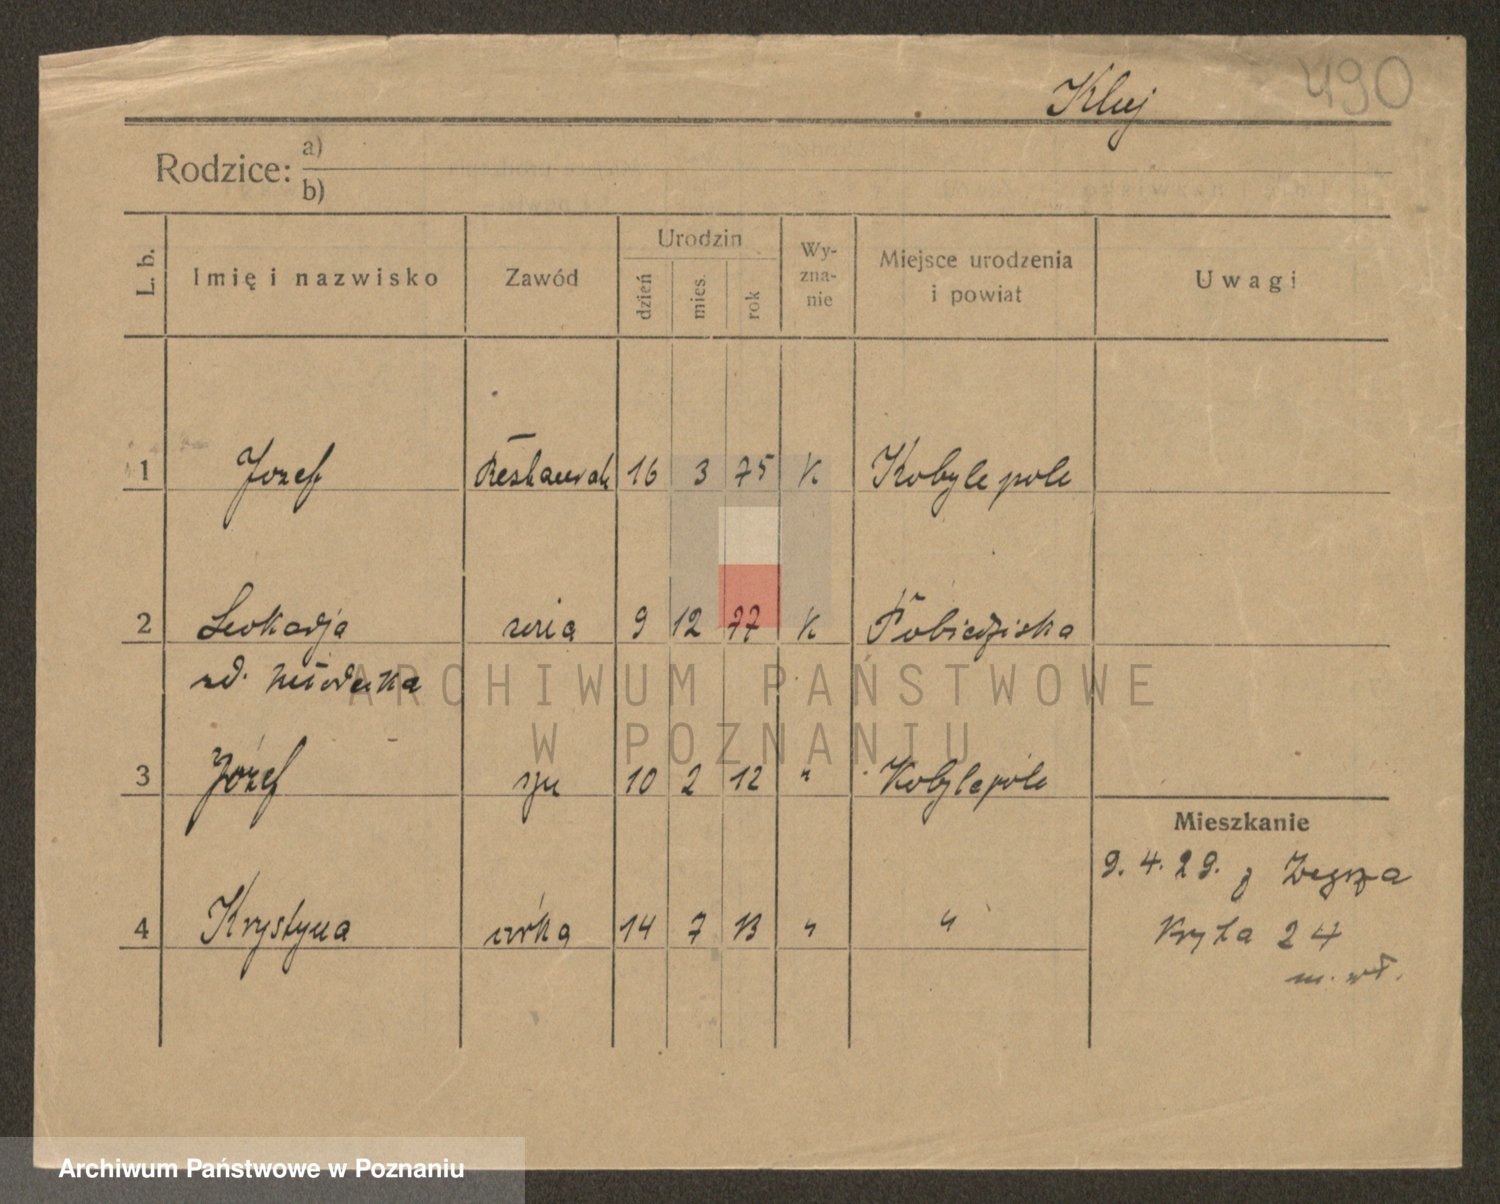 490
Kluj
Rodzice: a)
b)
L. b. Imię i nazwisko Zawód Urodzin dzień mies. rok Wy-zna-nie Miejsce urodzenia i powiat Uwagi
1 Jozef 16 3 75 K Kobylepole
2 Leokadja 9 12 77 K Pobiedziska
ARCHIWUM PAŃSTWOWE
W POZNANIU
3 Józef syn 10 2 12 " Kobylepole
Mieszkanie
9.4.29. z
4 Krystyna córka 14 7 13 " "
24
Archiwum Państwowe w Poznaniu